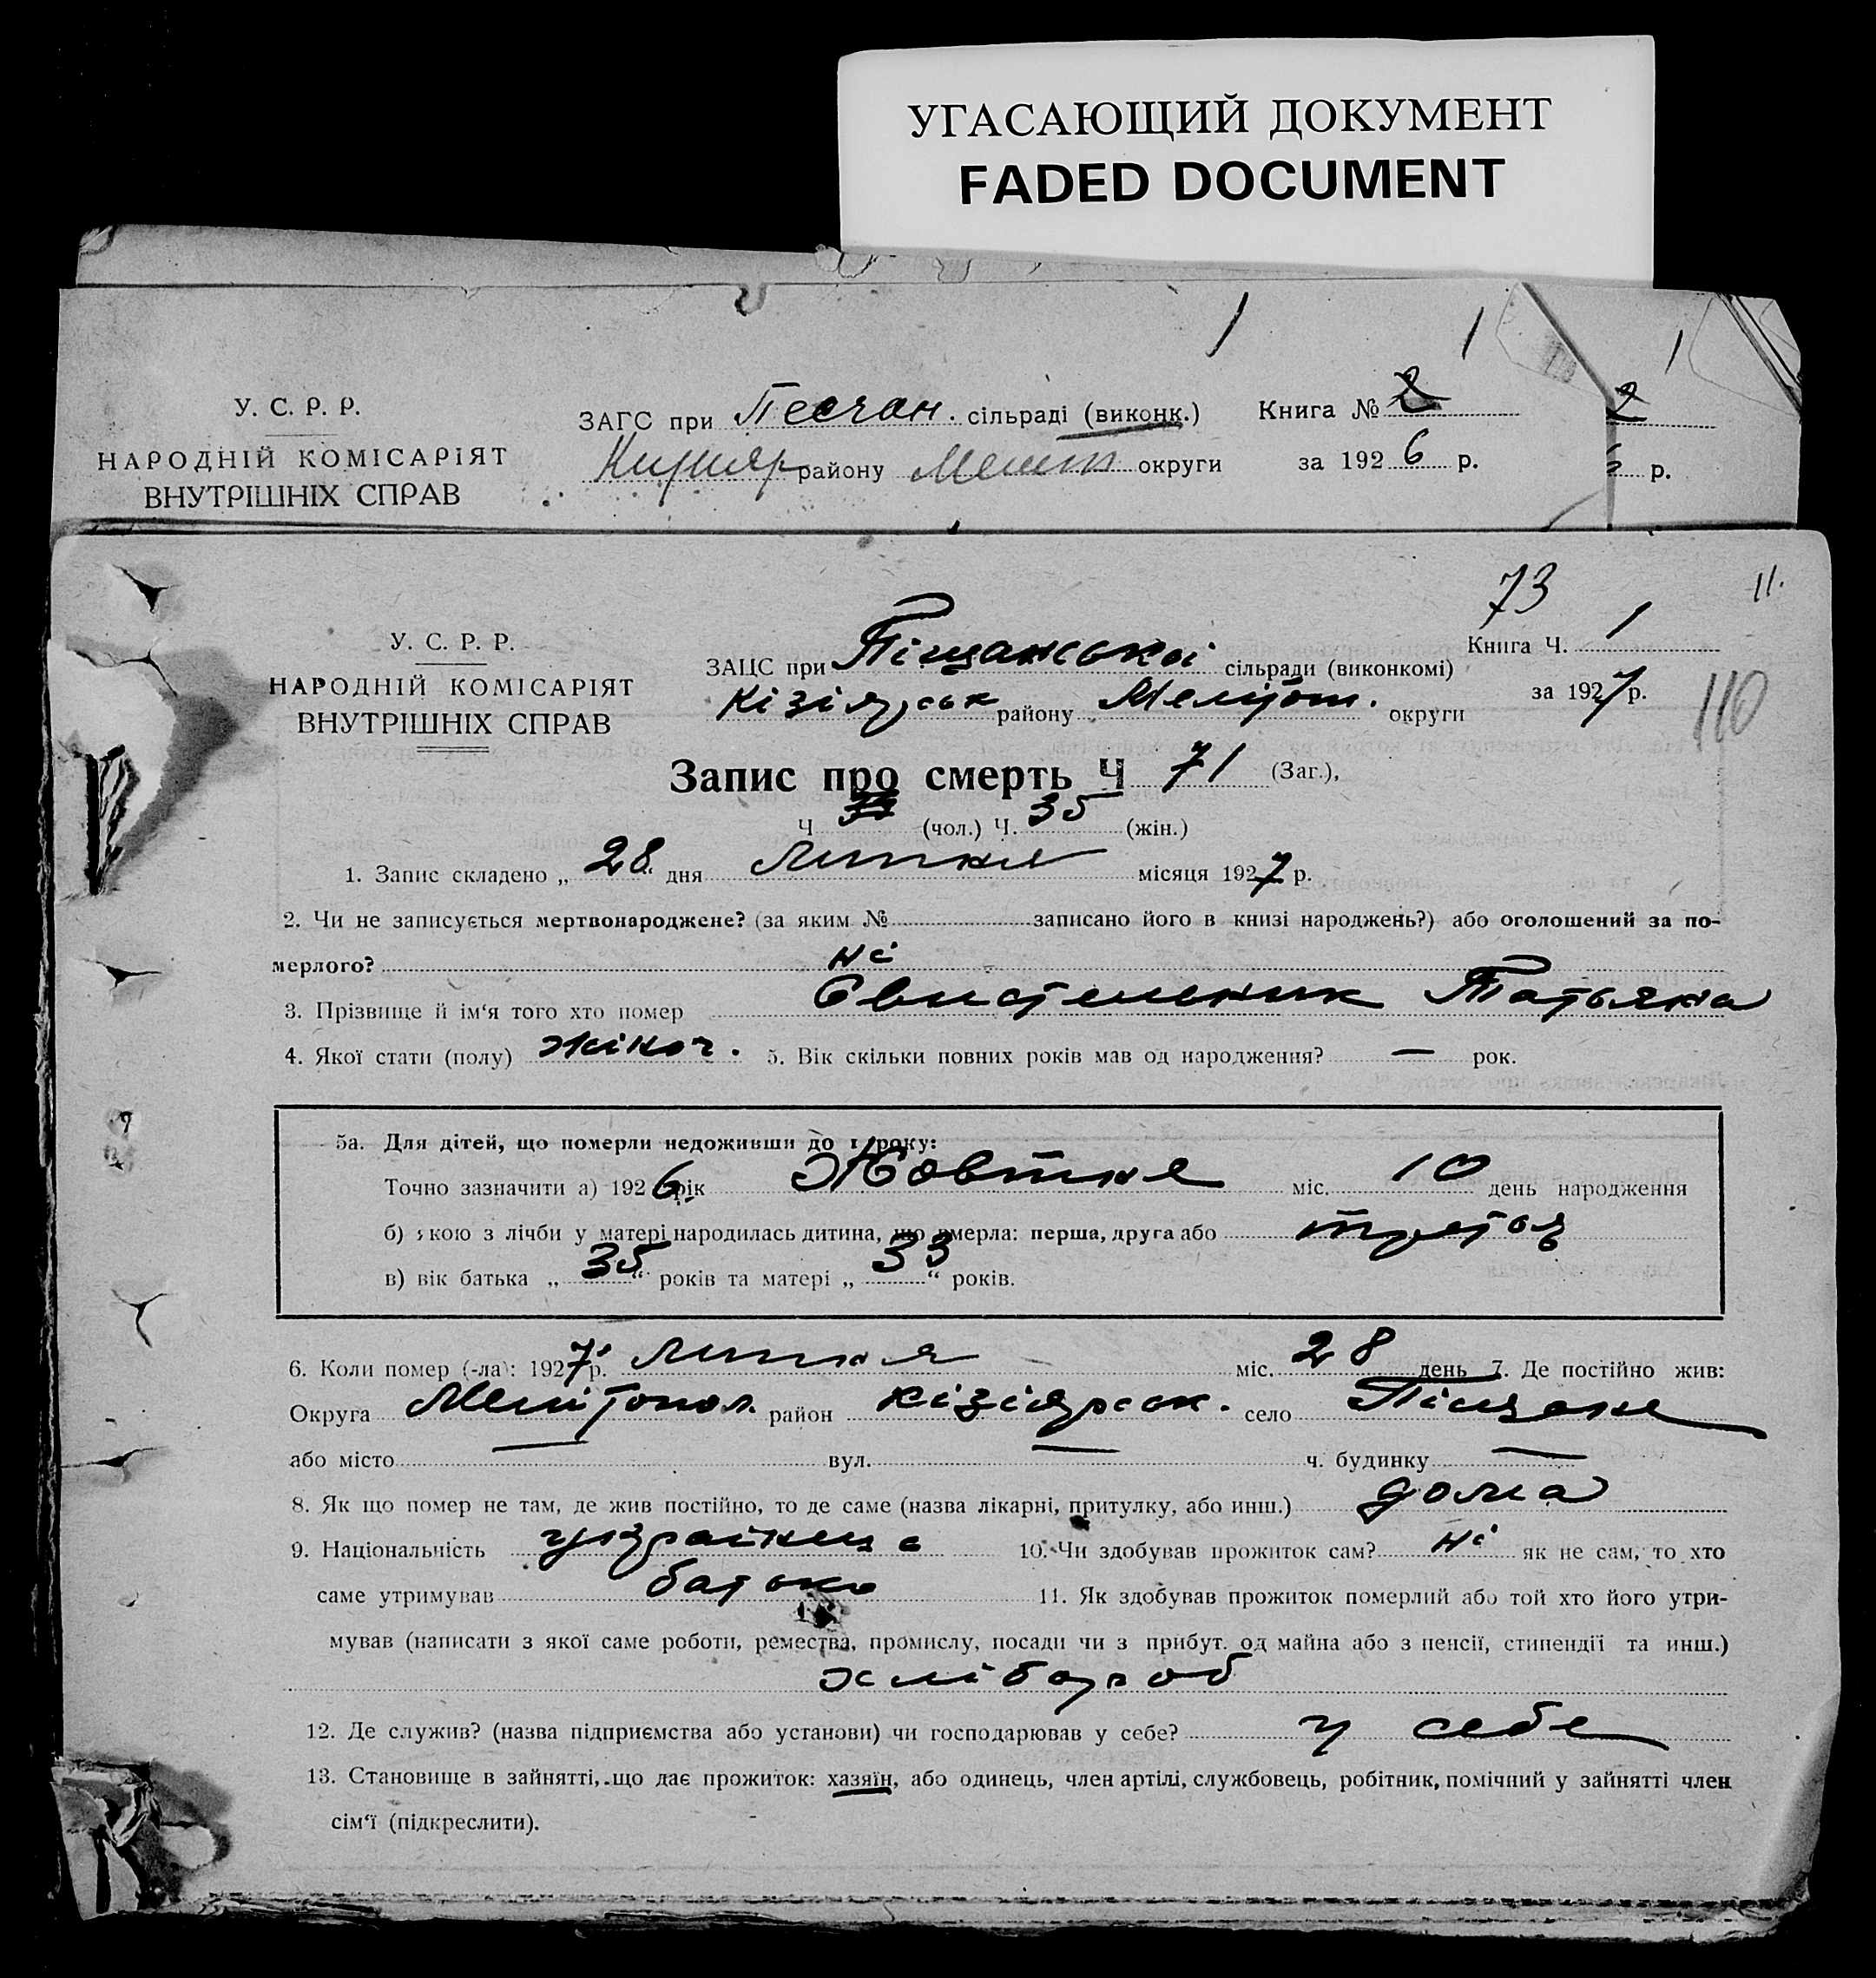 УГАСАЮЩИЙ ДОКУМЕНТ
FADED DOCUMENT
У. С. Р. Р.
НАРОДНІЙ КОМІСАРІЯТ
ВНУТРІШНІХ СПРАВ
ЗАГС при Песчан. сільраді (виконк.)
району Мелит округи
Книга № 2
за 1926 р.
2
р.
73
11.
110
У. С. Р. Р.
НАРОДНІЙ КОМІСАРІЯТ
ВНУТРІШНІХ СПРАВ
ЗАЦС при Піщанської сільради (виконкомі)
Кізіярськ району Мелітоп. округи
Книга Ч. 1
за 1927 р.
Запис про смерть Ч 71 (Заг.),
Ч (чол.) Ч. 35 (жін.)
1. Запис складено „ 28 “ дня Липня місяця 1927 р.
2. Чи не записується мертвонароджене? (за яким № записано його в книзі народжень?) або оголошений за по-
мерлого? ні
3. Прізвище й ім‘я того хто помер Свистельник Татьяна
4. Якої стати (полу) жіноч. 5. Вік скільки повних років мав од народження? — рок.
5а. Для дітей, що померли недоживши до 1 року:
Точно зазначити а) 1926 рік Жовтня міс. 10 день народження
б) якою з лічби у матері народилась дитина, що вмерла: перша, друга або третя
в) вік батька „ 35 “ років та матері „ 33 “ років.
6. Коли помер (-ла): 1927 р. Липня міс. 28 день 7. Де постійно жив:
Округа Мелітопол. район Кізіярськ. село Піщане
або місто — вул. — ч. будинку —
8. Як що помер не там, де жив постійно, то де саме (назва лікарні, притулку, або инш.) дома
9. Національність українка 10. Чи здобував прожиток сам? ні як не сам, то хто
саме утримував батько 11. Як здобував прожиток померлий або той хто його утри-
мував (написати з якої саме роботи, ремества, промислу, посади чи з прибут. од майна або з пенсії, стипендії та инш.)
хлібороб
12. Де служив? (назва підприємства або установи) чи господарював у себе? у себе
13. Становище в зайнятті, що дає прожиток: хазяїн, або одинець, член артілі, службовець, робітник, помічний у зайнятті член
сім‘ї (підкреслити).